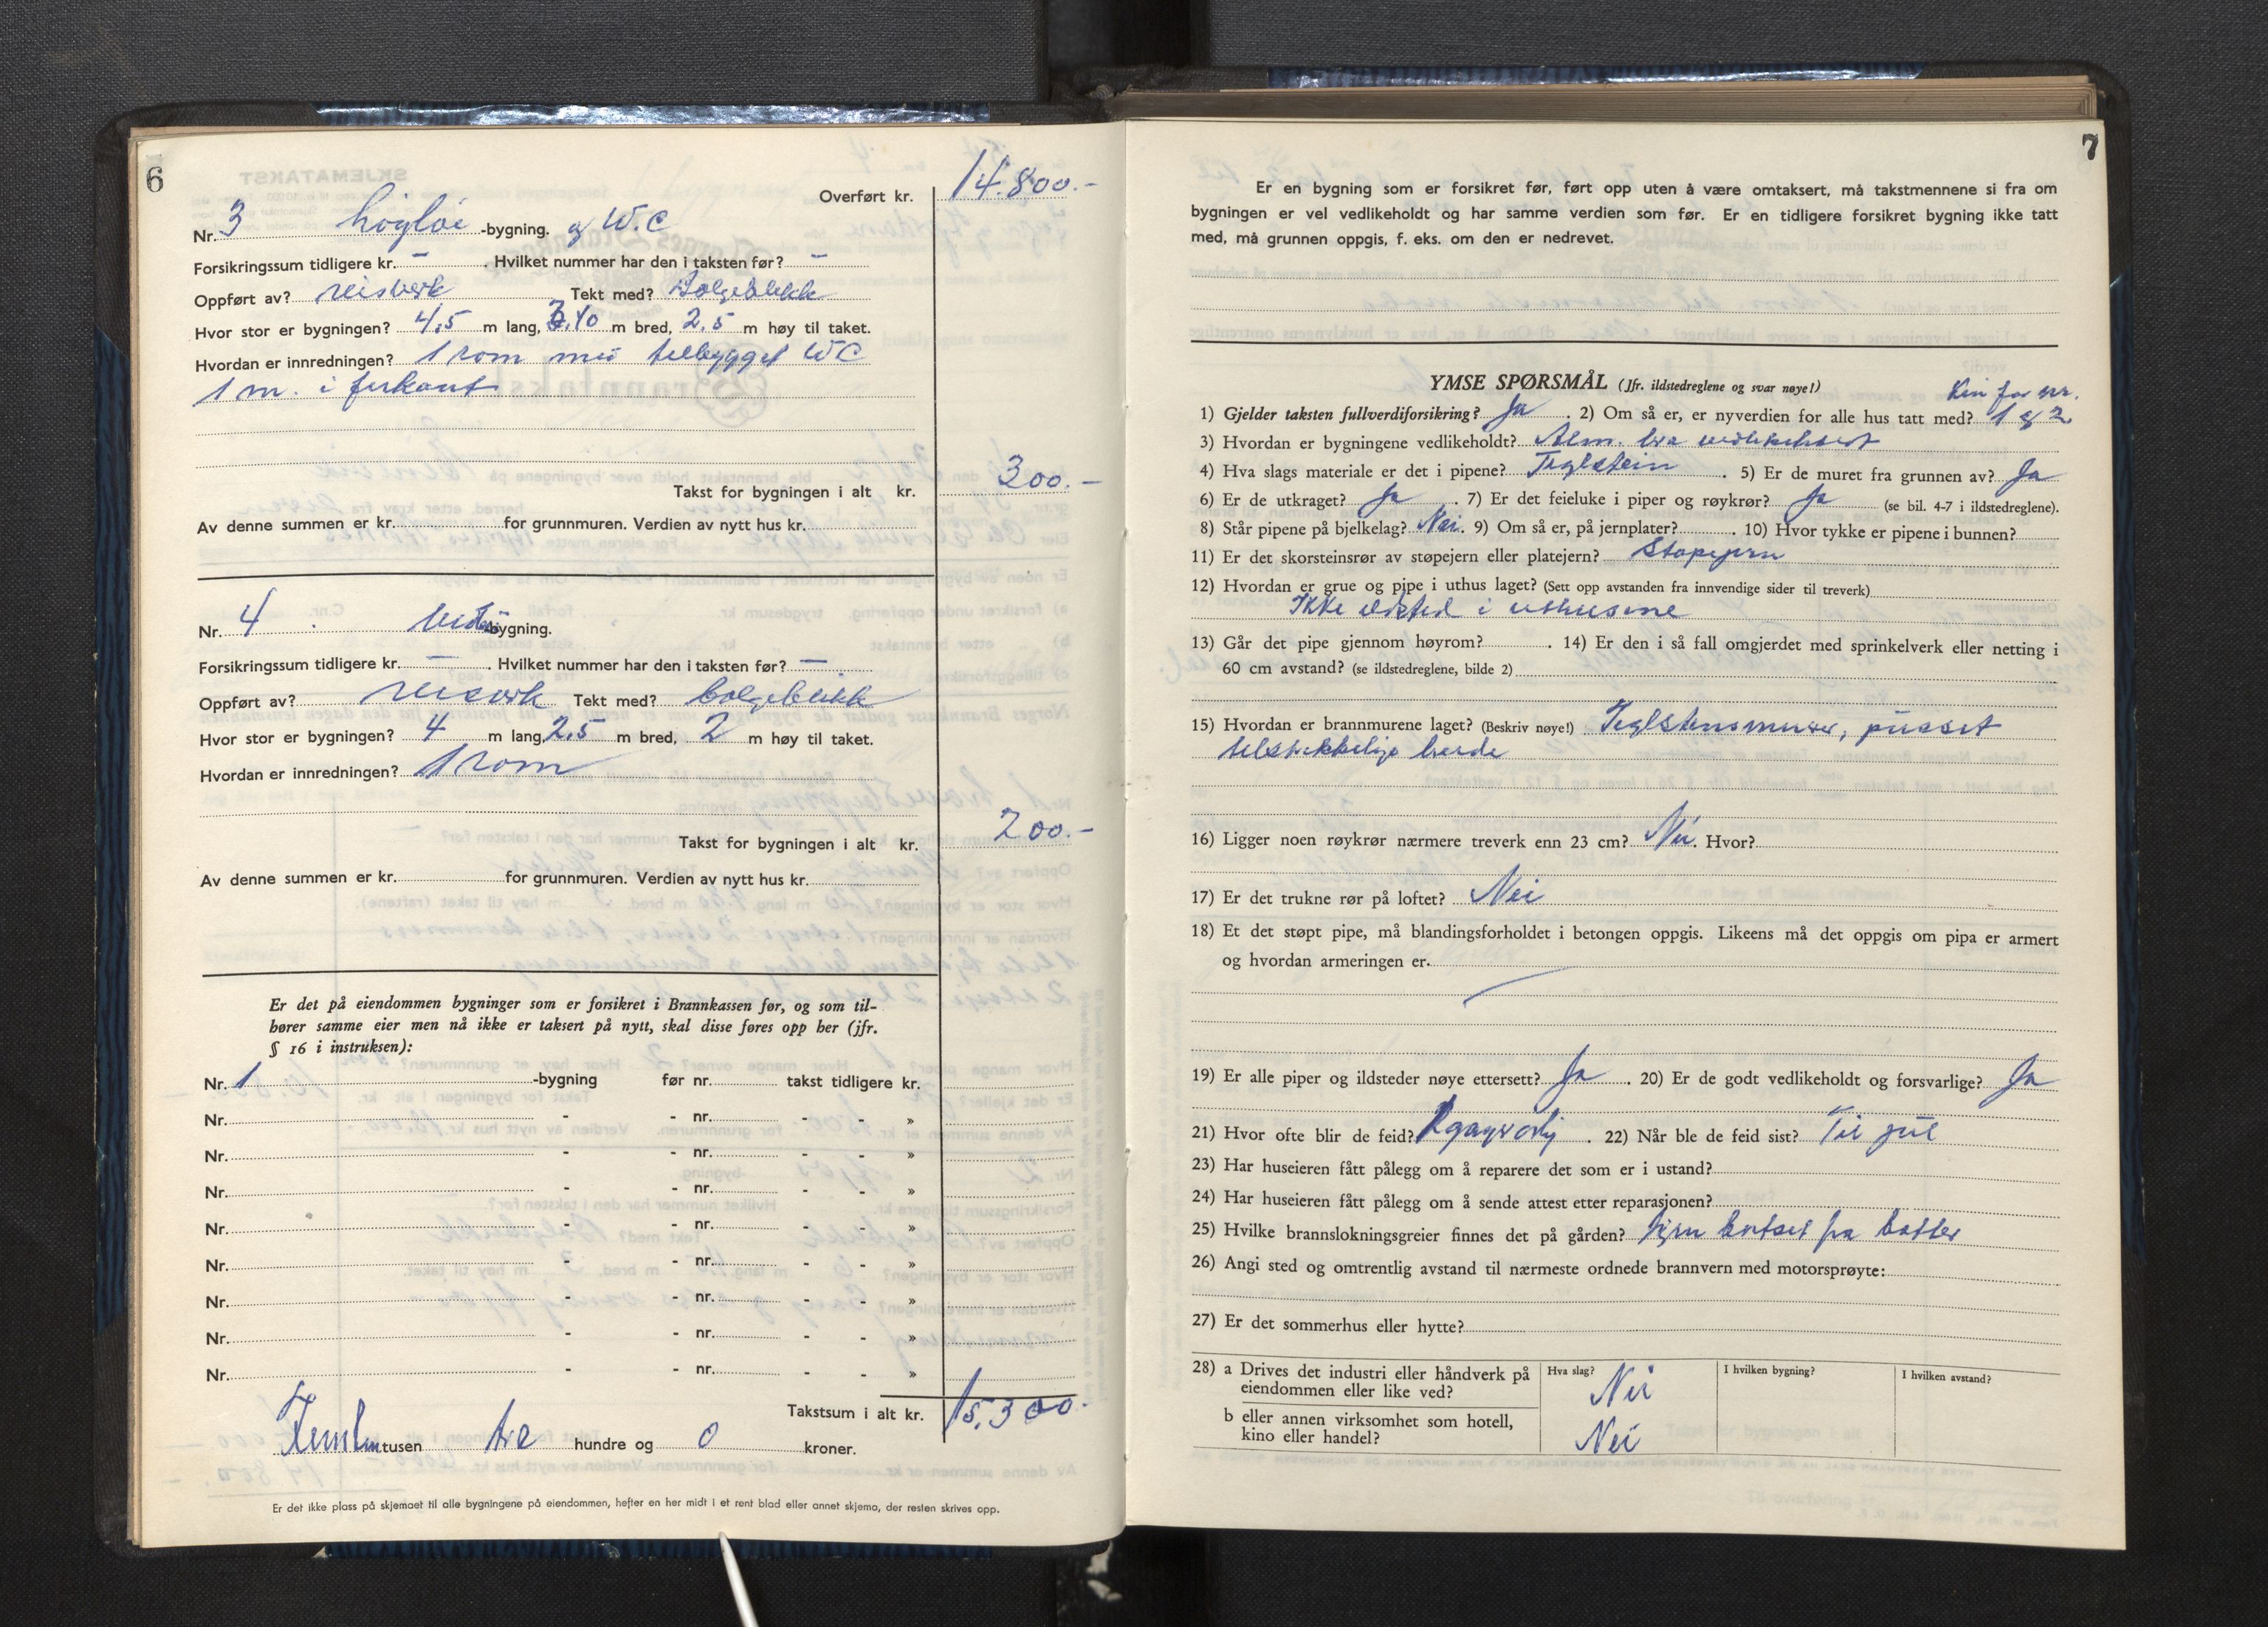 6
Overført kr. 14.800.-
Nr. 3 høyløe -bygning. og W.C
Forsikringssum tidligere kr. - . Hvilket nummer har den i taksten før? -
Oppført av? reisverk Tekt med? Bølgeblikk
Hvor stor er bygningen? 4,5 m lang, 3,10 m bred, 2,5 m høy til taket.
Hvordan er innredningen? 1 rom med tilbygget WC
1 m. i firkant
300.-
Takst for bygningen i alt kr.
Av denne summen er kr. for grunnmuren. Verdien av nytt hus kr.
Nr. 4 . bygning.
Forsikringssum tidligere kr. - . Hvilket nummer har den i taksten før? -
Oppført av? reisverk Tekt med? bølgeblikk
Hvor stor er bygningen? 4 m lang, 2,5 m bred, 2 m høy til taket.
Hvordan er innredningen? 1 rom
200.-
Takst for bygningen i alt kr.
Av denne summen er kr. for grunnmuren. Verdien av nytt hus kr.
Er det på eiendommen bygninger som er forsikret i Brannkassen før, og som til-
hører samme eier men nå ikke er taksert på nytt, skal disse føres opp her (jfr.
§ 16 i instruksen):
Nr. 1 -bygning før nr. takst tidligere kr.
Nr. - - nr. - - »
Nr. - - nr. - - »
Nr. - - nr. - - »
Nr. - - nr. - - »
Nr. - - nr. - - »
Nr. - - nr. - - »
Nr. - - nr. - - »
Nr. - - nr. - - »
Takstsum i alt kr. 15.300.
Femten tusen tre hundre og 0 kroner.
Er det ikke plass på skjemaet til alle bygningene på eiendommen, hefter en her midt i et rent blad eller annet skjema, der resten skrives opp.
7
Er en bygning som er forsikret før, ført opp uten å være omtaksert, må takstmennene si fra om
bygningen er vel vedlikeholdt og har samme verdien som før. Er en tidligere forsikret bygning ikke tatt
med, må grunnen oppgis, f. eks. om den er nedrevet.
YMSE SPØRSMÅL (Jfr. ildstedreglene og svar nøye!)
Kun for nr.
1) Gjelder taksten fullverdiforsikring? Ja . 2) Om så er, er nyverdien for alle hus tatt med? 1 og 2
3) Hvordan er bygningene vedlikeholdt? Alm. bra vedlikeholdt
4) Hva slags materiale er det i pipene? Teglstein . 5) Er de muret fra grunnen av? Ja
6) Er de utkraget? Ja . 7) Er det feieluke i piper og røykrør? Ja (se bil. 4-7 i ildstedreglene).
8) Står pipene på bjelkelag? Nei . 9) Om så er, på jernplater? . 10) Hvor tykke er pipene i bunnen?
11) Er det skorsteinsrør av støpejern eller platejern? Støpejern
12) Hvordan er grue og pipe i uthus laget? (Sett opp avstanden fra innvendige sider til treverk)
Ikke ildsted i uthusene
13) Går det pipe gjennom høyrom? . 14) Er den i så fall omgjerdet med sprinkelverk eller netting i
60 cm avstand? (se ildstedreglene, bilde 2)
15) Hvordan er brannmurene laget? (Beskriv nøye!) Teglstensmurer, pusset
tilstrekkelige brede
16) Ligger noen røykrør nærmere treverk enn 23 cm? Nei . Hvor?
17) Er det trukne rør på loftet? Nei
18) Et det støpt pipe, må blandingsforholdet i betongen oppgis. Likeens må det oppgis om pipa er armert
og hvordan armeringen er.
19) Er alle piper og ildsteder nøye ettersett? Ja . 20) Er de godt vedlikeholdt og forsvarlige? Ja
21) Hvor ofte blir de feid? . 22) Når ble de feid sist? Til jul
23) Har huseieren fått pålegg om å reparere det som er i ustand?
24) Har huseieren fått pålegg om å sende attest etter reparasjonen?
25) Hvilke brannslokningsgreier finnes det på gården? bortsett fra bøtter
26) Angi sted og omtrentlig avstand til nærmeste ordnede brannvern med motorsprøyte:
27) Er det sommerhus eller hytte?
28) a Drives det industri eller håndverk på eiendommen eller like ved? Hva slag? Nei I hvilken bygning? I hvilken avstand?
b eller annen virksomhet som hotell, kino eller handel? Nei